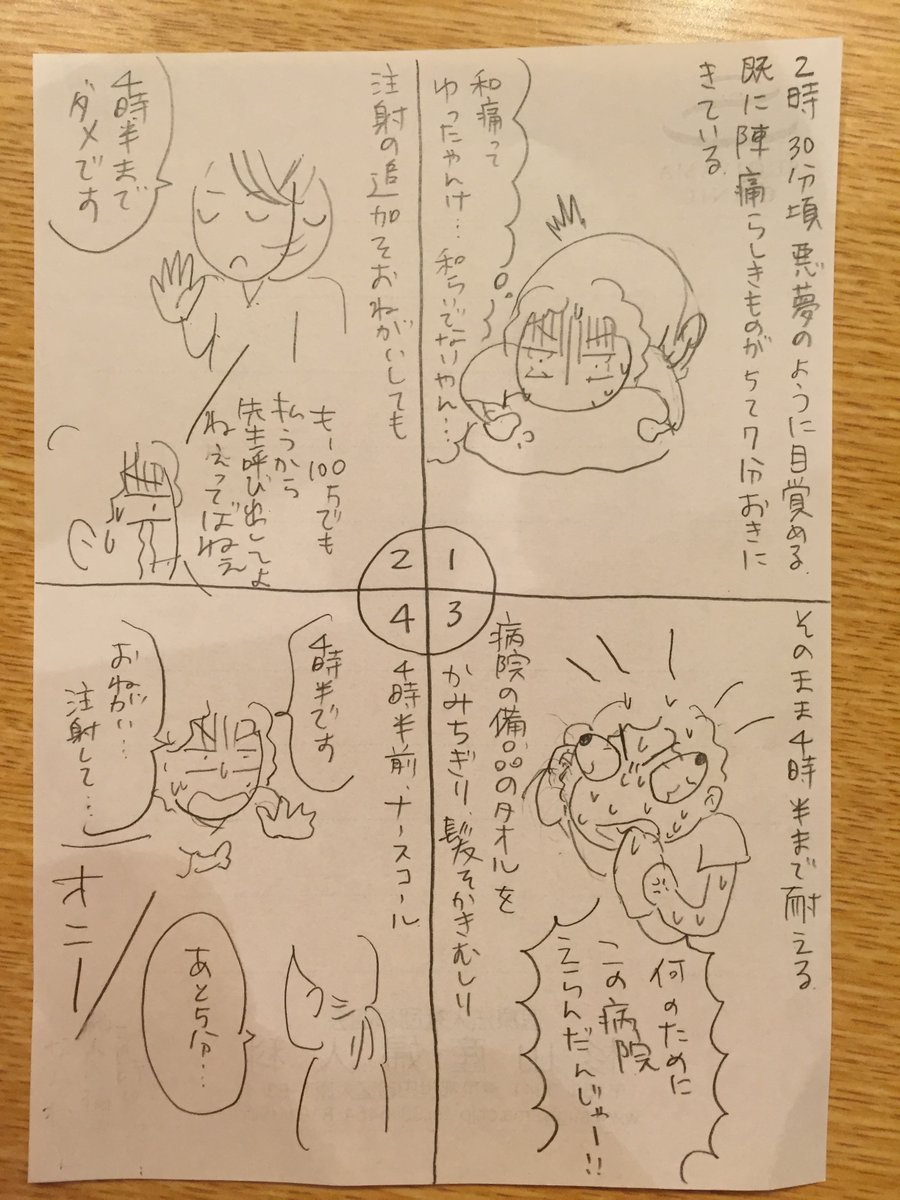 2時30分頃 悪夢のように目覚める
既に陣痛らしきものが5て7分おきに
きている
和痛って
ゆったやんけ…和らいでないやん…
1
注射の追加をおねがいしても
4時半まで
ダメです
もー100万でも
払うから
先生呼び出してよ
ねぇってばねぇ
2
そのまま4時半まで耐える
何のために
この病院
えらんだんじゃー!!
病院の備品のタオルを
かみちぎり髪をかきむしり
3
4時半前、ナースコール
4時半です
おねがい…
注射して…
あと5分…
オニー
4